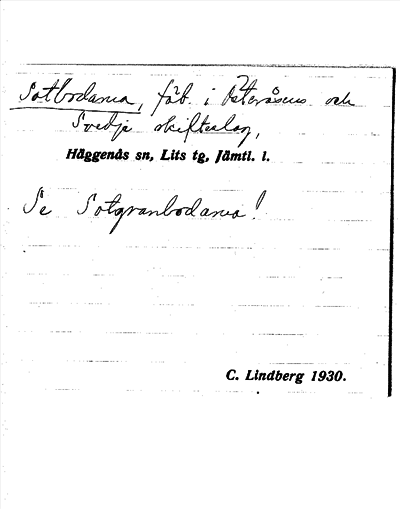 Sotbodarna, fäb. i Österåsens och
Svedje skifteslag,
Häggenås sn, Lits tg, Jämtl. l.
Se Sotgranbodarna!
C. Lindberg 1930.